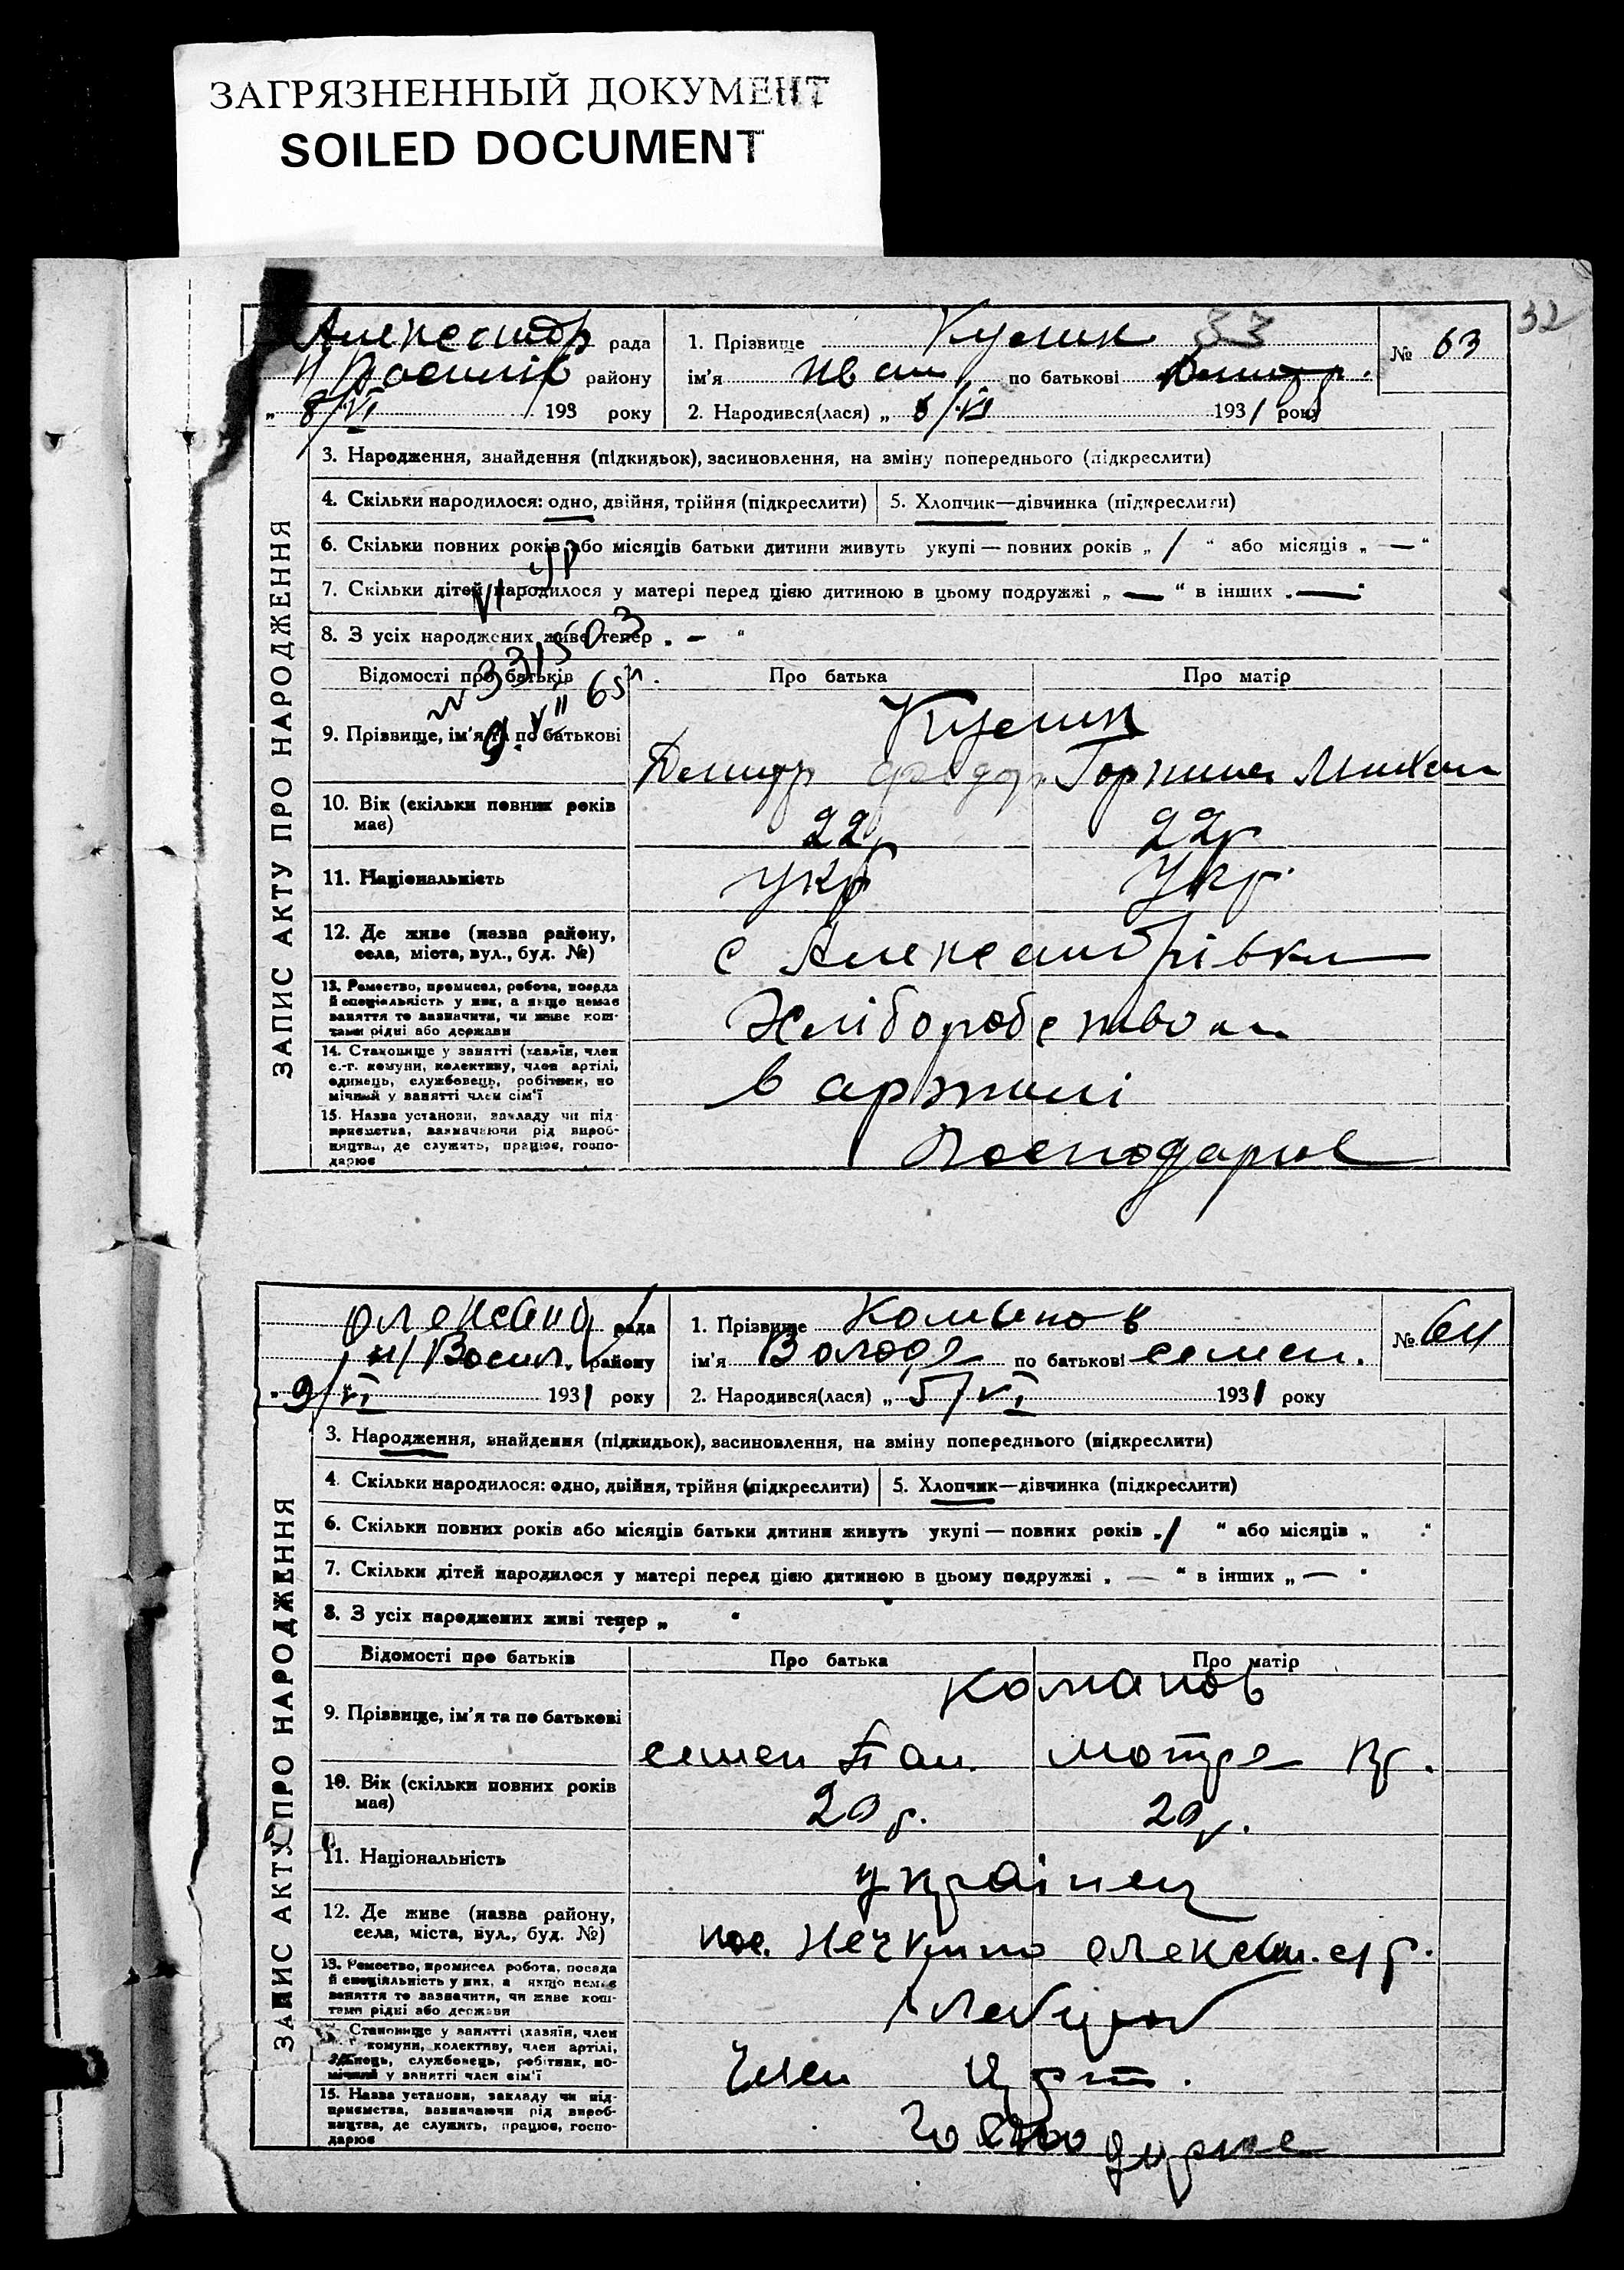 ЗАГРЯЗНЕННЫЙ ДОКУМЕНТ
SOILED DOCUMENT
32
Александр рада
району
„ 8/VI 193 року
1. Прізвище Кулик 33
ім'я Иван по батькові Дмитр.
2. Народився(лася) „ 5/VI 1931 року
№ 63
ЗАПИС АКТУ ПРО НАРОДЖЕННЯ
3. Народження, знайдення (підкидьок), засиновлення, на зміну попереднього (підкреслити)
4. Скільки народилося: одно, двійня, трійня (підкреслити) 5. Хлопчик—дівчинка (підкреслити)
6. Скільки повних років або місяців батьки дитини живуть укупі — повних років „ / “ або місяців „ — “
7. Скільки дітей народилося у матері перед цією дитиною в цьому подружжі „ — “ в інших „ — “
8. З усіх народжених живе тепер „ - “
Відомості про батьків Про батька Про матір
9. Прізвище, ім'я та по батькові Кулик
Дмитр Федор
10. Вік (скільки повних років має) 22р 22р
11. Національність укр Укр.
12. Де живе (назва району, села, міста, вул., буд. №) с Александрівка
13. Ремество, промисел, робота, посада й спеціальність у них, а якщо немає заняття то зазначити, чи живе коштами рідні або держави Хліборобство
14. Становище у занятті (хазяїн, член с.-г. комуни, колективу, член артілі, одинець, службовець, робітник, помічний у занятті член сім'ї в артилі
15. Назва установи, закладу чи підприємства, зазначаючи рід виробництва, де служить, працює, господарює Господарює
Олександ рада
н/Васил. району
„ 9/VI 1931 року
1. Прізвище
ім'я Володя по батькові Семен.
2. Народився(лася) „ 5/VI 1931 року
№ 64
ЗАПИС АКТУ ПРО НАРОДЖЕННЯ
3. Народження, знайдення (підкидьок), засиновлення, на зміну попереднього (підкреслити)
4. Скільки народилося: одно, двійня, трійня (підкреслити) 5. Хлопчик—дівчинка (підкреслити)
6. Скільки повних років або місяців батьки дитини живуть укупі — повних років „ / “ або місяців „ “
7. Скільки дітей народилося у матері перед цією дитиною в цьому подружжі „ — “ в інших „ — “
8. З усіх народжених живі тепер „ “
Відомості про батьків Про батька Про матір
9. Прізвище, ім'я та по батькові
Семен Пан. Мотря
10. Вік (скільки повних років має) 20 р. 20 р.
11. Національність українец
12. Де живе (назва району, села, міста, вул., буд. №) пос.
13. Ремество, промисел робота, посада й спеціальність у них, а якщо немає заняття то зазначити, чи живе коштами рідні або держави
Становище у занятті (хазяїн, член комуни, колективу, член артілі, одинець, службовець, робітник, помічний у занятті член сім'ї Член
15. Назва установи, закладу чи підприємства, зазначаючи рід виробництва, де служить, працює, господарює Господарює